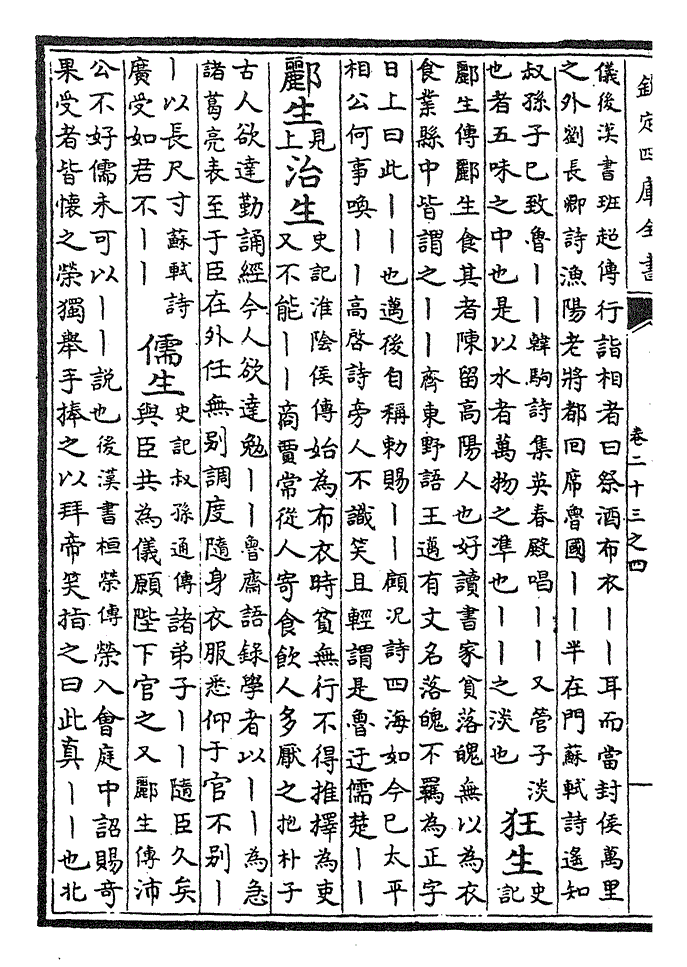 欽定四庫全書
卷二十三之四
儀後漢書班超傳行詣相者曰祭酒布衣丨丨耳而當封侯萬里
之外劉長卿詩漁陽老將都回席魯國丨丨半在門蘇軾詩遙知
叔孫子已致魯丨丨韓駒詩集英春殿唱丨丨丨又管子淡
也者五味之中也是以水者萬物之準也丨丨之淡也
狂生
史
記
酈生傳酈生食其者陳留高陽人也好讀書家貧落魄無以為衣
食業縣中皆謂之丨丨齊東野語王邁有文名落魄不羈為正字
日上曰此丨丨也邁後自稱勅賜丨丨顧况詩四海如今已太平
相公何事喚丨丨高啓詩旁人不識笑且輕謂是魯迂儒楚丨丨
酈生
見
上
治生
史記淮陰侯傳始為布衣時貧無行不得推擇為吏
又不能丨丨商賈常從人寄食飲人多厭之抱朴子
古人欲達勤誦經今人欲達勉丨丨魯齋語録學者以丨丨為急
諸葛亮表至于臣在外任無别調度隨身衣服悉仰于官不别丨
丨以長尺寸蘇軾詩
廣受如君不丨丨
儒生
史記叔孫通傳諸弟子丨丨隨臣久矣
與臣共為儀願陛下官之又酈生傳沛
公不好儒未可以丨丨說也後漢書桓榮傳榮入會庭中詔賜竒
果受者皆懷之榮獨舉手捧之以拜帝笑指之曰此真丨丨也北